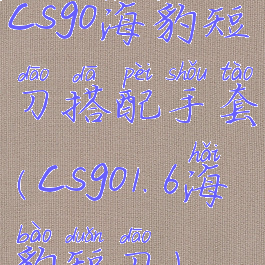 CSgo海豹短
dāo dā pèi shǒu tào
刀搭配手套
hǎi
(CSgo1.6海
bào duǎn dāo
豹短刀)